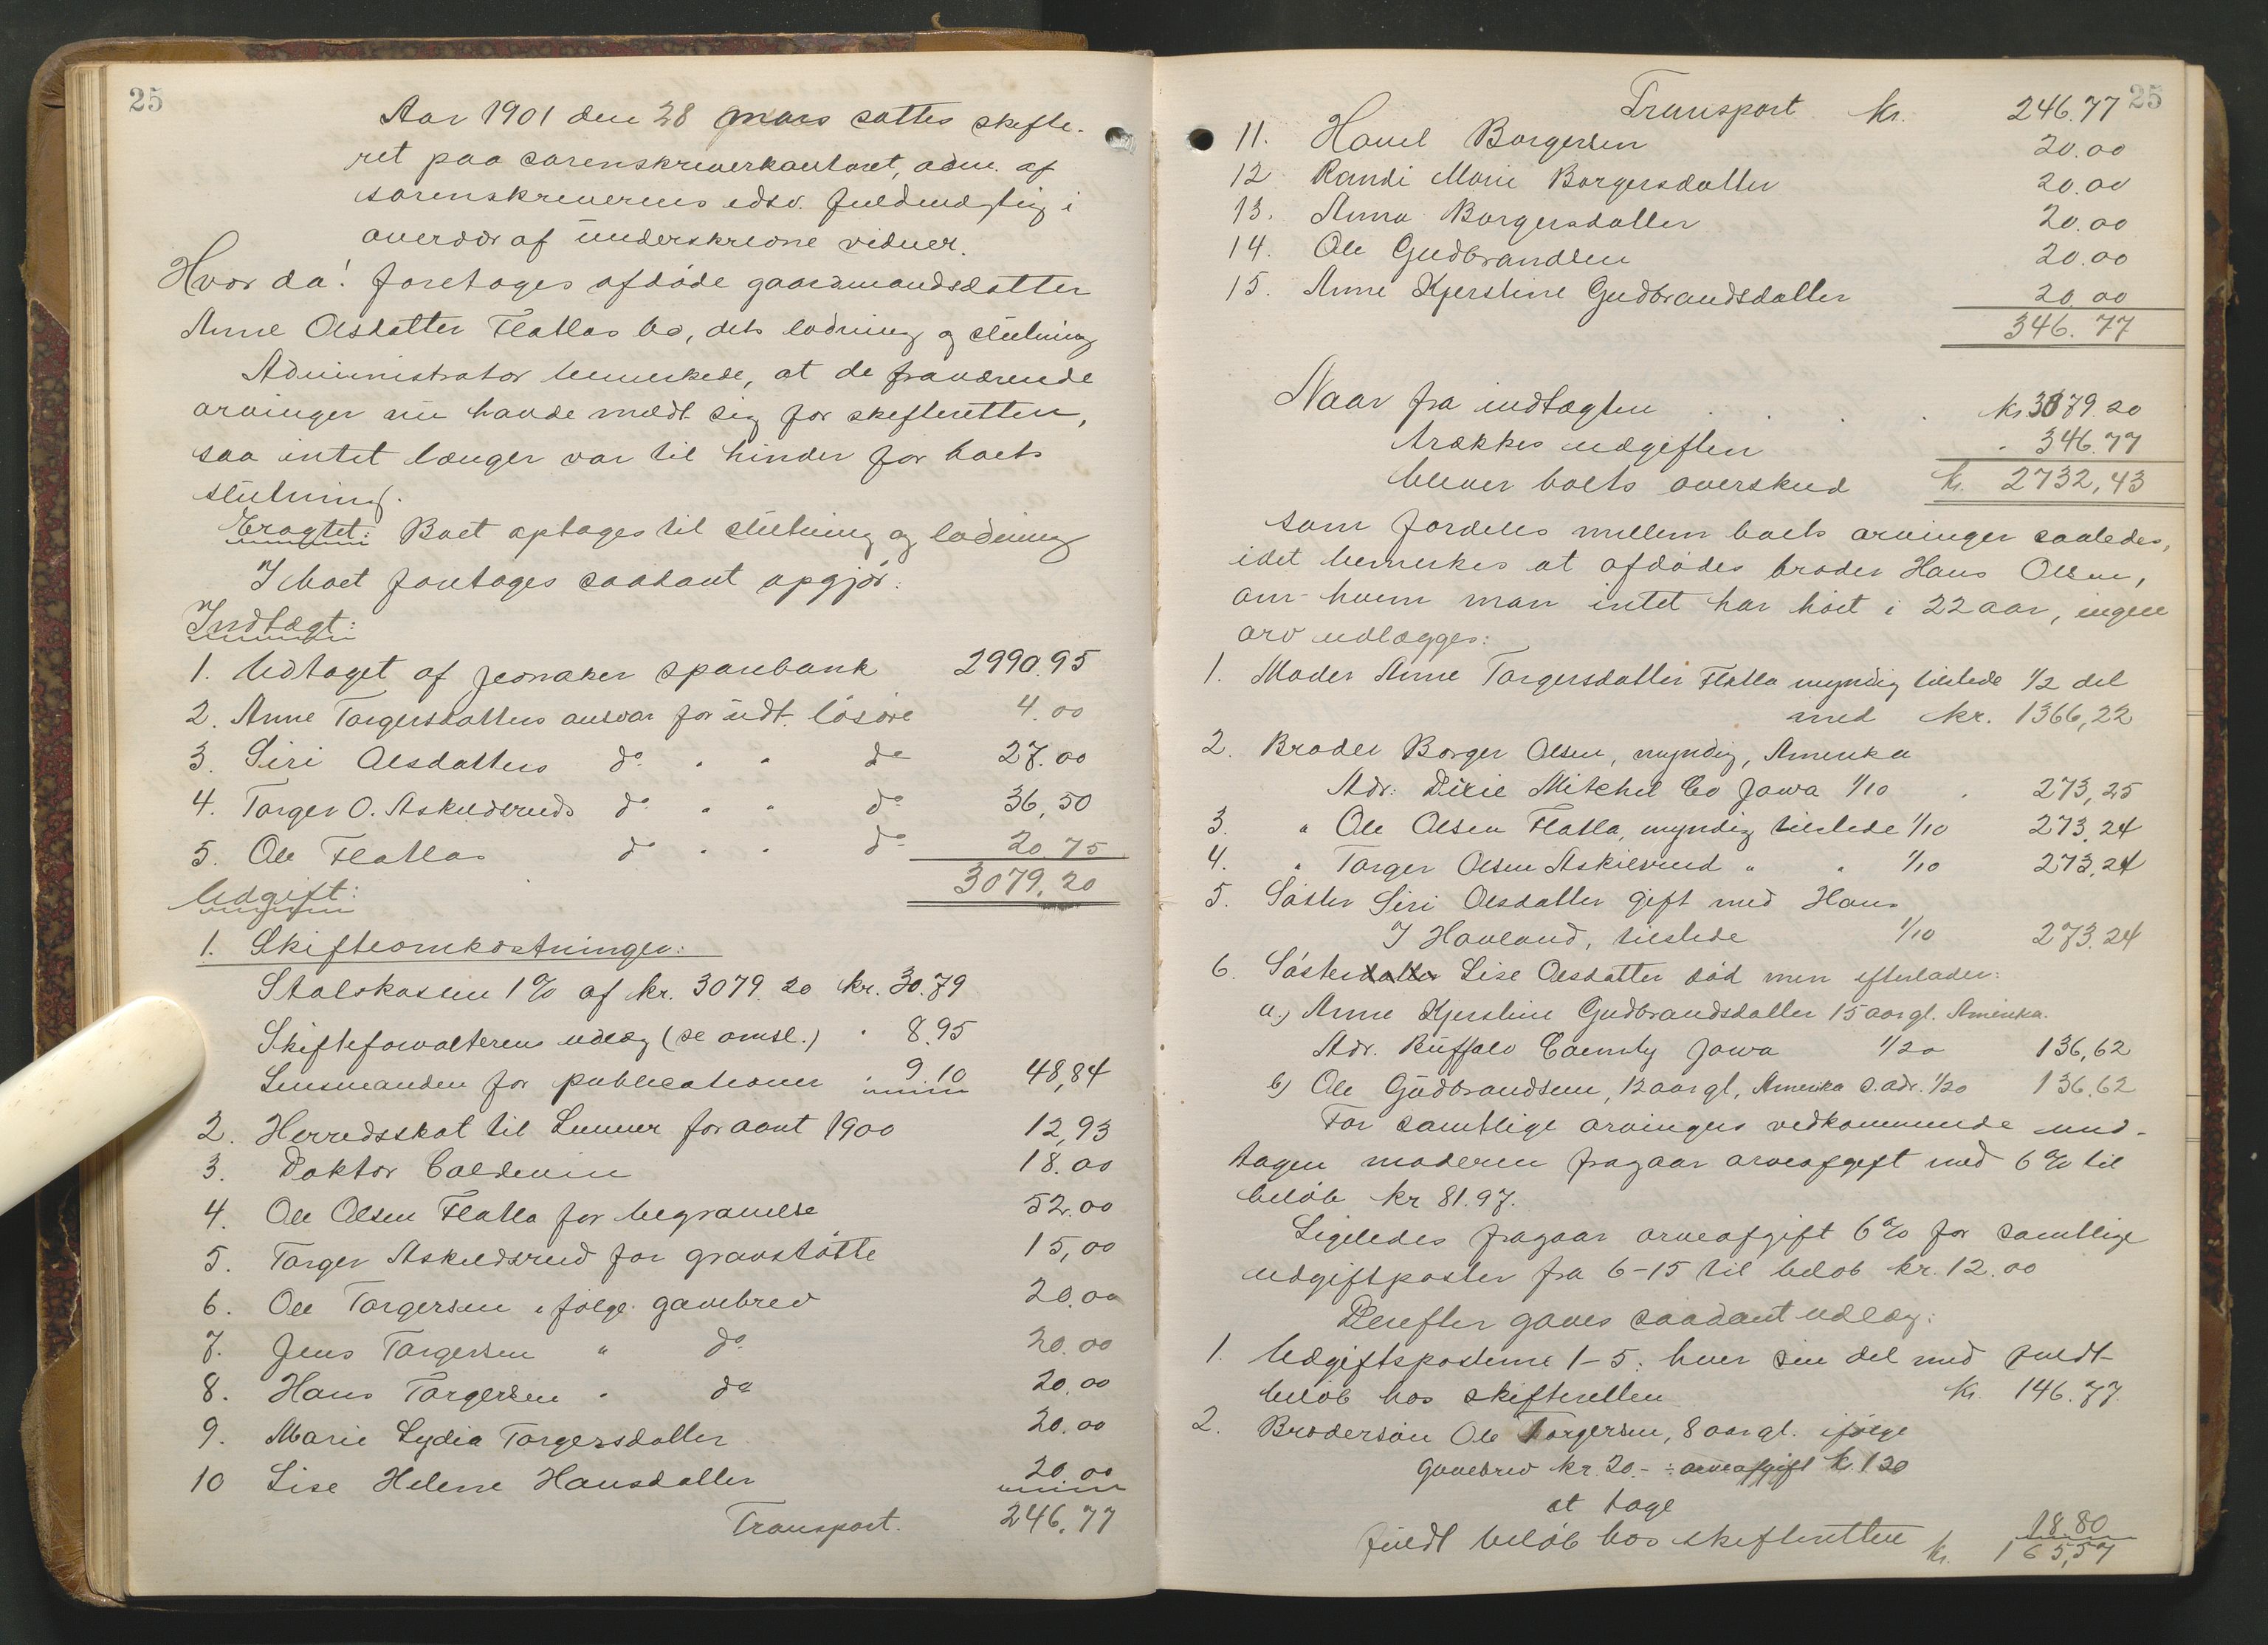 25
Aar 1901 den 28 mars sattes skifte-
ret paa sorenskriverkontoret, adm. af
sorenskriverens edsv. fuldmægtig i
overvær af underskrevne vidner.
Hvor da! foretoges afdøde gaardmandsdatter
Anne Olsdatter Flatlas bo, dets lodning og slutning
Administrator bemerkede, at de fraværende
arvinger nu havde mældt sig for skifteretten,
saa intet længer var til hinder for boets
slutning.
Eragtet: Boet optages til slutning og lodning
I boet foretoges saadant opgjør:
Indtægt:
1. Udtaget af Jevnaker sparebank 2990.95
2. Anne Torgersdatters ansvar for udt. løsøre 4.00
3. Siri Olsdatters do " " do 27.00
4. Torger O. Askildsruds do " " do 36,50
5. Ole Flatlas do " " do 20.75
3079.20
Udgift:
1. Skifteomkostninger:
Statskassen 1% af kr. 3079.20 kr. 30.79
Skifteforvalterens udlæg (se omsl.) " 8.95
Lensmanden for publicationer " 9.10 48,84
2. Herredsskat til Lunner for aaret 1900 12,93
3. Doktor Coldevin 18.00
4. Ole Olsen Flatla for begravelse 52.00
5. Torger Askildsrud for gravstøtte 15,00
6. Ole Torgersen i følge gavebrev 20.00
7. Jens Torgersen " do 20.00
8. Hans Torgersen " do 20.00
9. Marie Lydia Torgersdatter 20.00
10 Lise Helene Hansdatter 20.00
Transport. 246.77
25
Transport kr. 246.77
11. Havel Borgersen 20.00
12 Randi Marie Borgersdatter 20.00
13. Anna Borgersdatter 20.00
14. Ole Gudbrandsen 20.00
15. Anne Kjerstine Gudbrandsdatter 20.00
346.77
Naar fra indtægten kr. 3079.20
trækkes udgiften " 346.77
bliver boets overskud kr. 2732,43
som fordeles mellem boets arvinger saaledes,
idet bemerkes at afdødes broder Hans Olsen,
om hvem man intet har hørt i 22 aar, ingen
arv udlægges:
1. Moder Anne Torgersdatter Flatla myndig tilstede 1/2 del
med kr. 1366,22
2. Broder Borger Olsen, myndig, Amerika
Adr: Dixie Mitchel Co Jowa 1/10 " 273,25
3. " Ole Olsen Flatla, myndig tilstede 1/10 273,24
4. " Torger Olsen Askilsrud " " 1/10 273,24
5. Søster Siri Olsdatter gift med Hans
J Hovland, tilstede 1/10 273.24
6. Søsterdatter Lise Olsdatter død men efterlader:
a.) Anne Kjerstine Gudbrandsdatter 15 aar gl. Amerika.
Adr. Buffalo County Jowa 1/20 136,62
b) Ole Gudbrandsen, 12 aar gl, Amerika s. adr. 1/20 136.62
For samtlige arvingers vedkommende und-
tagen moderen fragaar arveafgift med 6% til
beløb kr 81.97.
Ligeledes fragaar arveafgift 6% for samtlige
udgiftposter fra 6-15 til beløb kr. 12.00
Derefter gaves saadant udlæg:
1. Udgiftsposterne 1-5: hver sin del med fuldt-
beløb hos skifteretten kr. 146.77
2. Brodersøn Ole Torgersen, 8 aar gl. ifølge
gavebrev kr. 20.- ÷ arveafgift kr. 1 20
at tage
fuldt beløb hos skifteretten 18.80
kr. 165,57